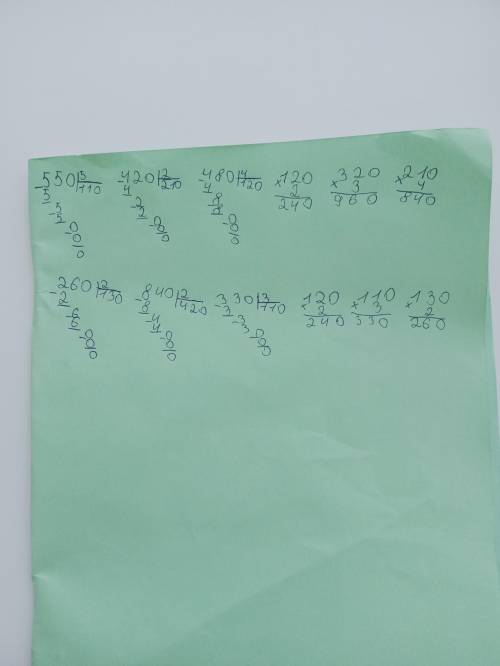 -550|5 -420|2 -480|4 ×120 ×320 ×210
5 110 4 210 4 120 2 3 4
-5 -2 -8 240 960 840
5 2 8
-0 -0 -0
0 0 0
0 0 0
-260|2 -840|2 -330|3 ×120 ×110 ×130
2 130 8 420 3 110 2 3 2
-6 -4 -3 240 330 260
6 4 3
-0 -0 -0
0 0 0
0 0 0